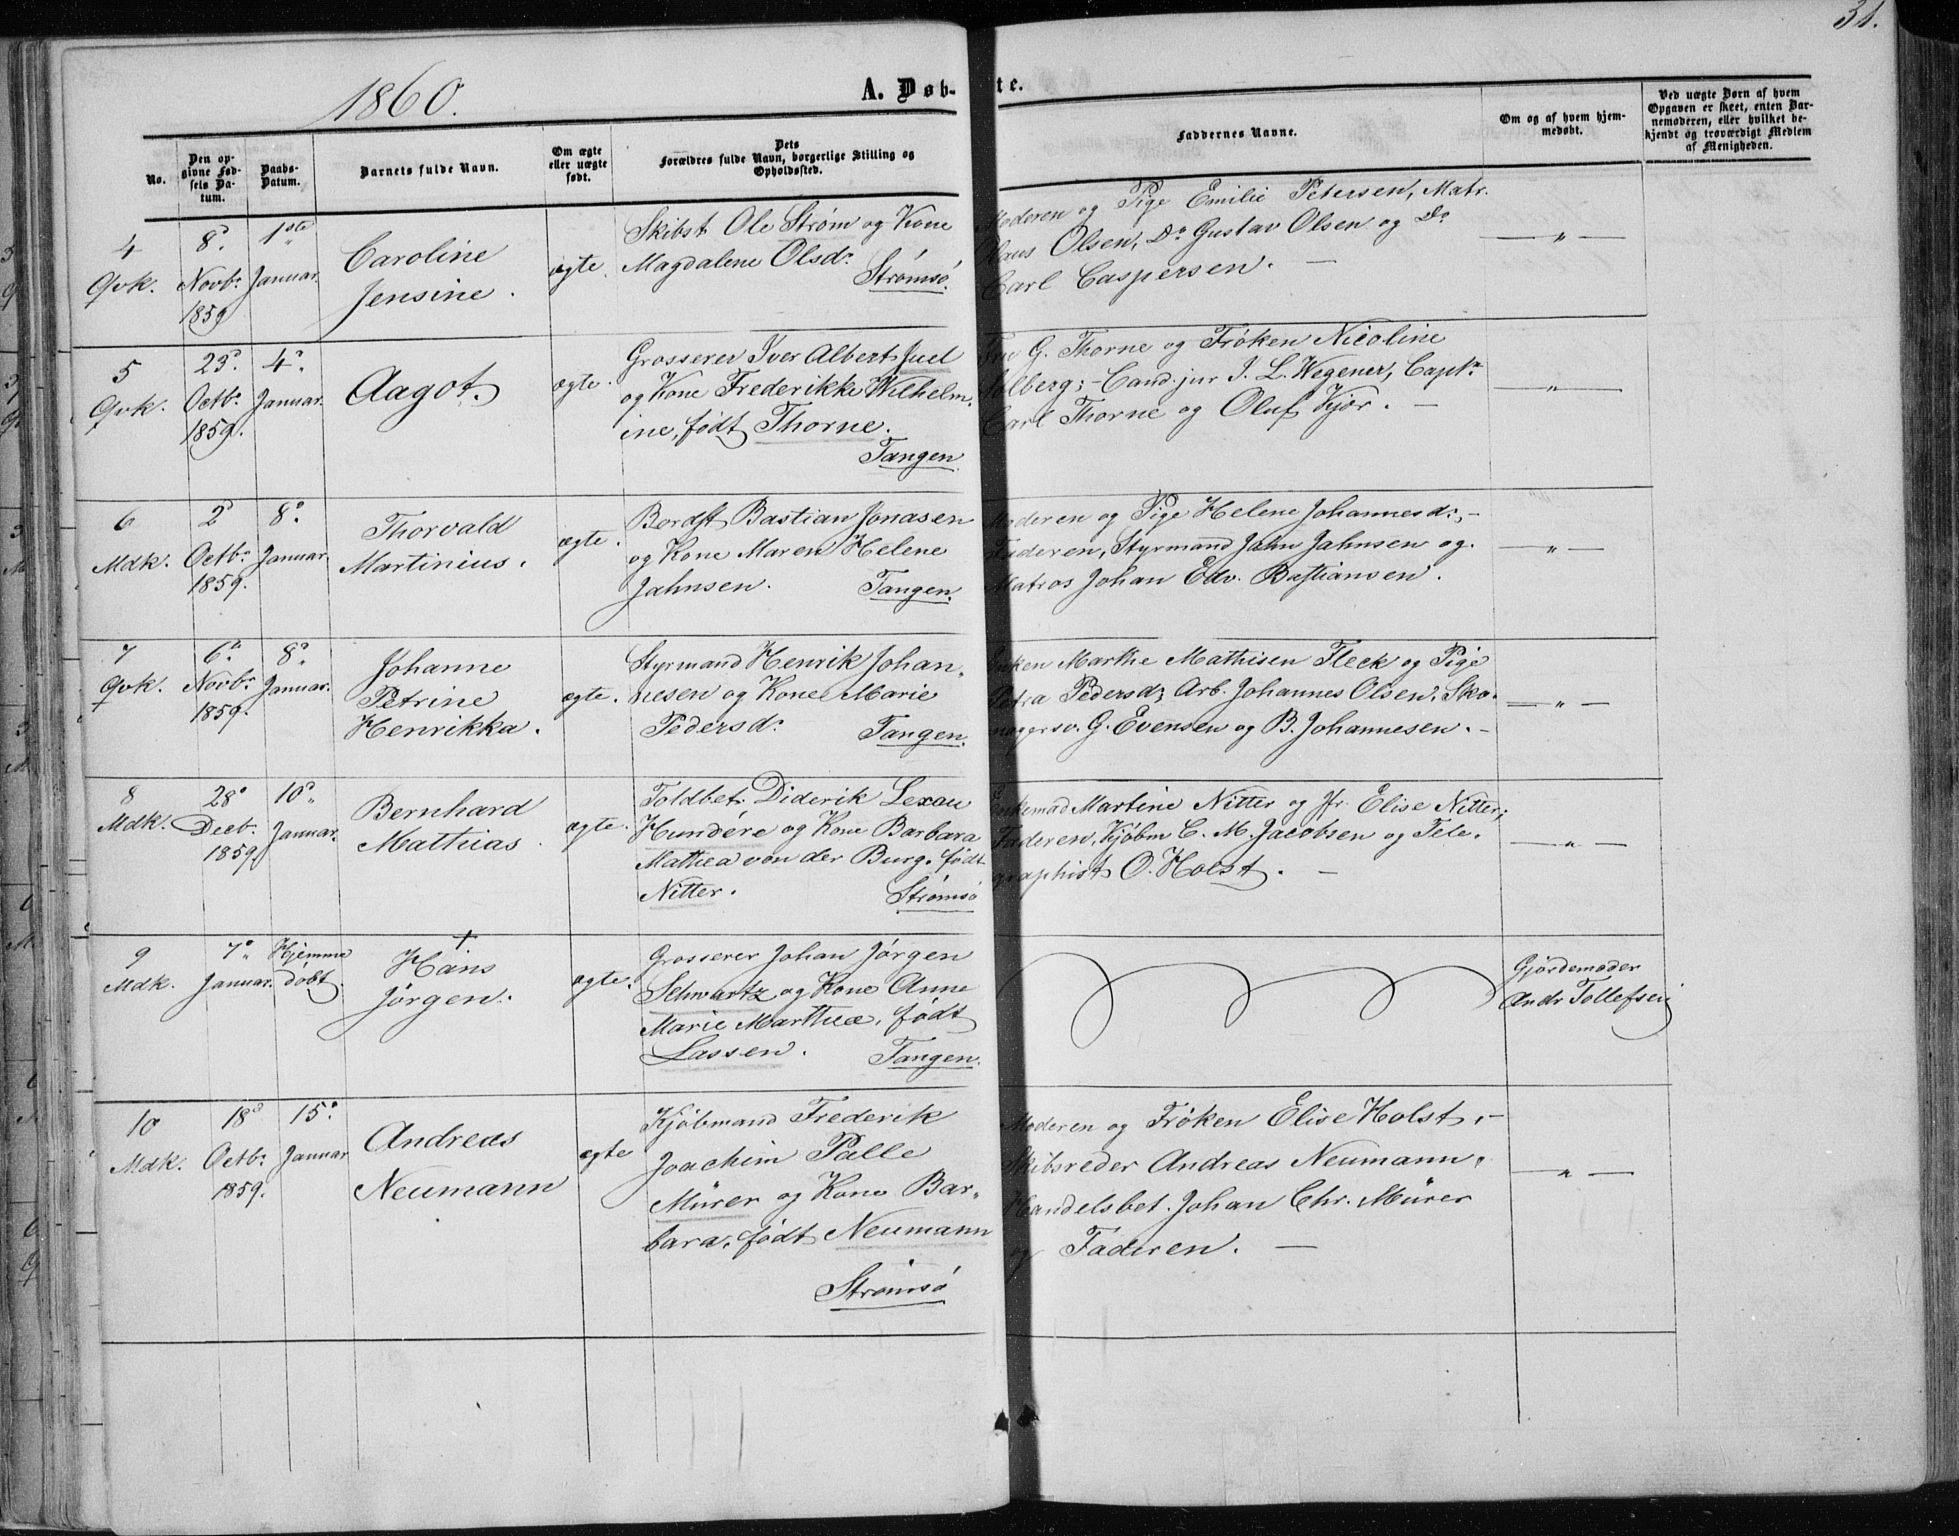 31.
1860.
A. Døb-
te.
No.
Den op-
givne Fød-
sels Da-
tum.
Daabs-
Datum.
Barnets fulde Navn.
Om ægte
eller uægte
født.
Dets
Forældres fulde Navn, borgerlige Stilling og
Opholdssted.
Faddernes Navne.
Om og af hvem hjem-
medøbt.
Ved uægte Børn af hvem
Opgaven er skeet, enten Bar-
nemoderen, eller hvilket be-
kjendt og troværdigt Medlem
af Menigheden.
4
Qvk.
8de
Novbr
1859
1ste
Januar.
Caroline
Jensine.
ægte.
Skibst Ole Strøm og Kone
Magdalene Olsdr
Strømsö.
Moderen og Pige Emilie Petersen, Matr.
Claus Olsen, Do Gustav Olsen og Do
Carl Caspersen. —
— " —
5
Qvk.
23d
Octbr
1859.
4d
Januar.
Aagot.
ægte.
Grosserer Iver Albert Juel
og Kone Frederikke Wilhelm-
ine, født Thorne.
Tangen.
Fru G. Thorne og Frøken Nicoline
Solberg; - Cand. jur I. L. Wegener, Captn
Carl Thorne og Oluf Kjör. —
— " —
6
Mdk.
2d
Octbr
1859.
8d
Januar.
Thorvald
Martinius.
ægte.
Bordst Bastian Jonasen
og Kone Maren Helene
Jahnsen.
Tangen.
Moderen og Pige Helene Johannesdr, -
Faderen, Styrmand Jahn Jahnsen og
Matros Johan Edv. Bastiansen.
— " —
7
Qvk.
6d
Novbr
1859.
8d
Januar.
Johanne
Petrine
Henrikka.
ægte.
Styrmand Henrik Johan-
nesen og Kone Marie
Pedersdr
Tangen.
Enken Marthe Mathisen Fleck og Pige
Petra Pedersdr, Arb. Johannes Olsen, Sko-
magersv. G. Evensen og B. Johannesen. -
— " —
8
Mdk.
28d
Decbr.
1859.
10d
Januar.
Bernhard
Mathias.
ægte.
Toldbet. Diderik Lexau
Hundére og Kone Barbara
Mathea von der Burg, født
Nitter.
Strømsö
Enkemad Martine Nitter og Jfr Elise Nitter;
Faderen, Kjöbm C. M. Jacobsen og Tele-
graphist O. Holst. —
— " —
9
Mdk.
7d
Januar.
Hjemme
döbt.
†
Hans
Jørgen.
ægte.
Grosserer Johan Jørgen
Schwartz og Kone Anne
Marie Marthea, født
Lassen.
Tangen.
Gjördemoder
Andr Tollefsen
10
Mdk.
18d
Octbr
1859.
15d
Januar
Andreas
Neumann
ægte
Kjöbmand Frederik
Joachim Palle
Mürer og Kone Bar-
bara, født Neumann
Strømsö
Moderen og Frøken Elise Holst, -
Skibsreder Andreas Neumann,
Handelsbet. Johan Chr. Mürer
og Faderen. —
— " —